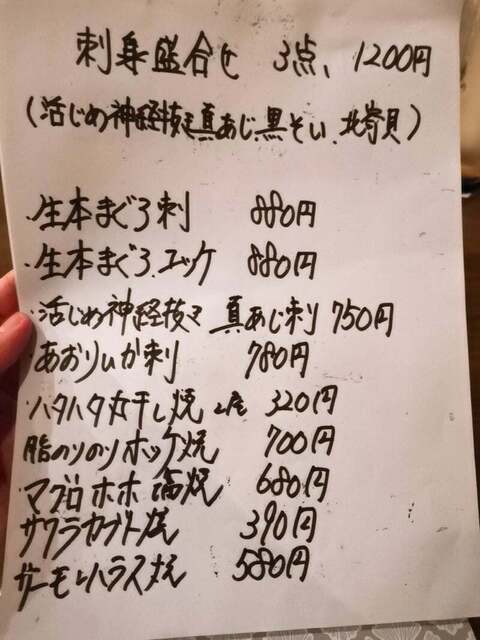 刺身盛合せ 3点、1200円
(活じめ神経抜き真あじ、黒そい、北寄貝)
・生本まぐろ刺 880円
・生本まぐろユッケ 880円
・活じめ神経抜き 真あじ刺 750円
・あおりいか刺 780円
・ハタハタ丸干し焼 320円
脂のりのりホッケ焼 700円
マグロホホ 焼 680円
サワラカブト焼 390円
サーモンハラス焼 580円